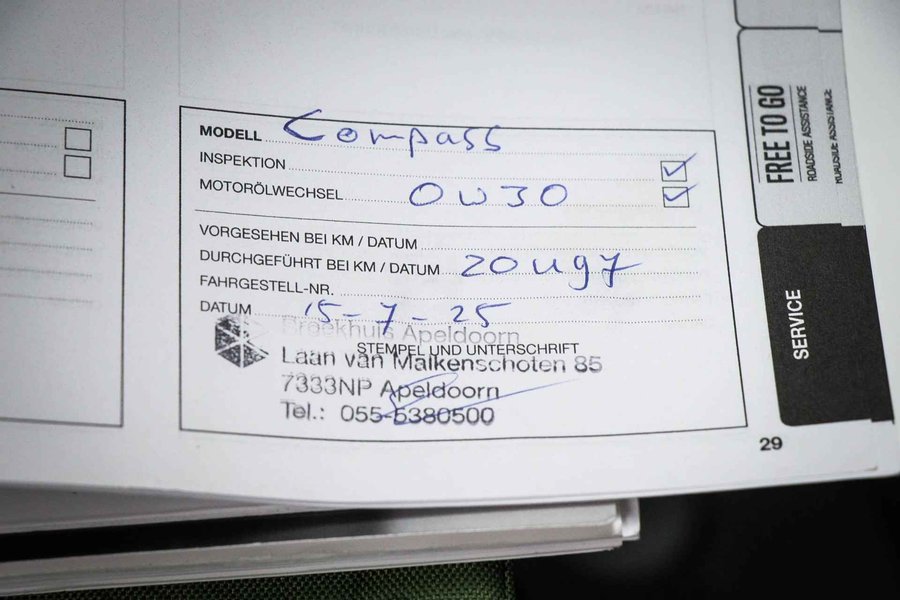 MODELL Compass
INSPEKTION
MOTORÖLWECHSEL 0W30
VORGESEHEN BEI KM / DATUM
DURCHGEFÜHRT BEI KM / DATUM 20497
FAHRGESTELL-NR.
DATUM 15-7-25
Broekhuis Apeldoorn
STEMPEL UND UNTERSCHRIFT
Laan van Malkenschoten 85
7333NP Apeldoorn
Tel.: 055-5380500
FREE TO GO
ROADSIDE ASSISTANCE
ROADSIDE ASSISTANCE
SERVICE
29